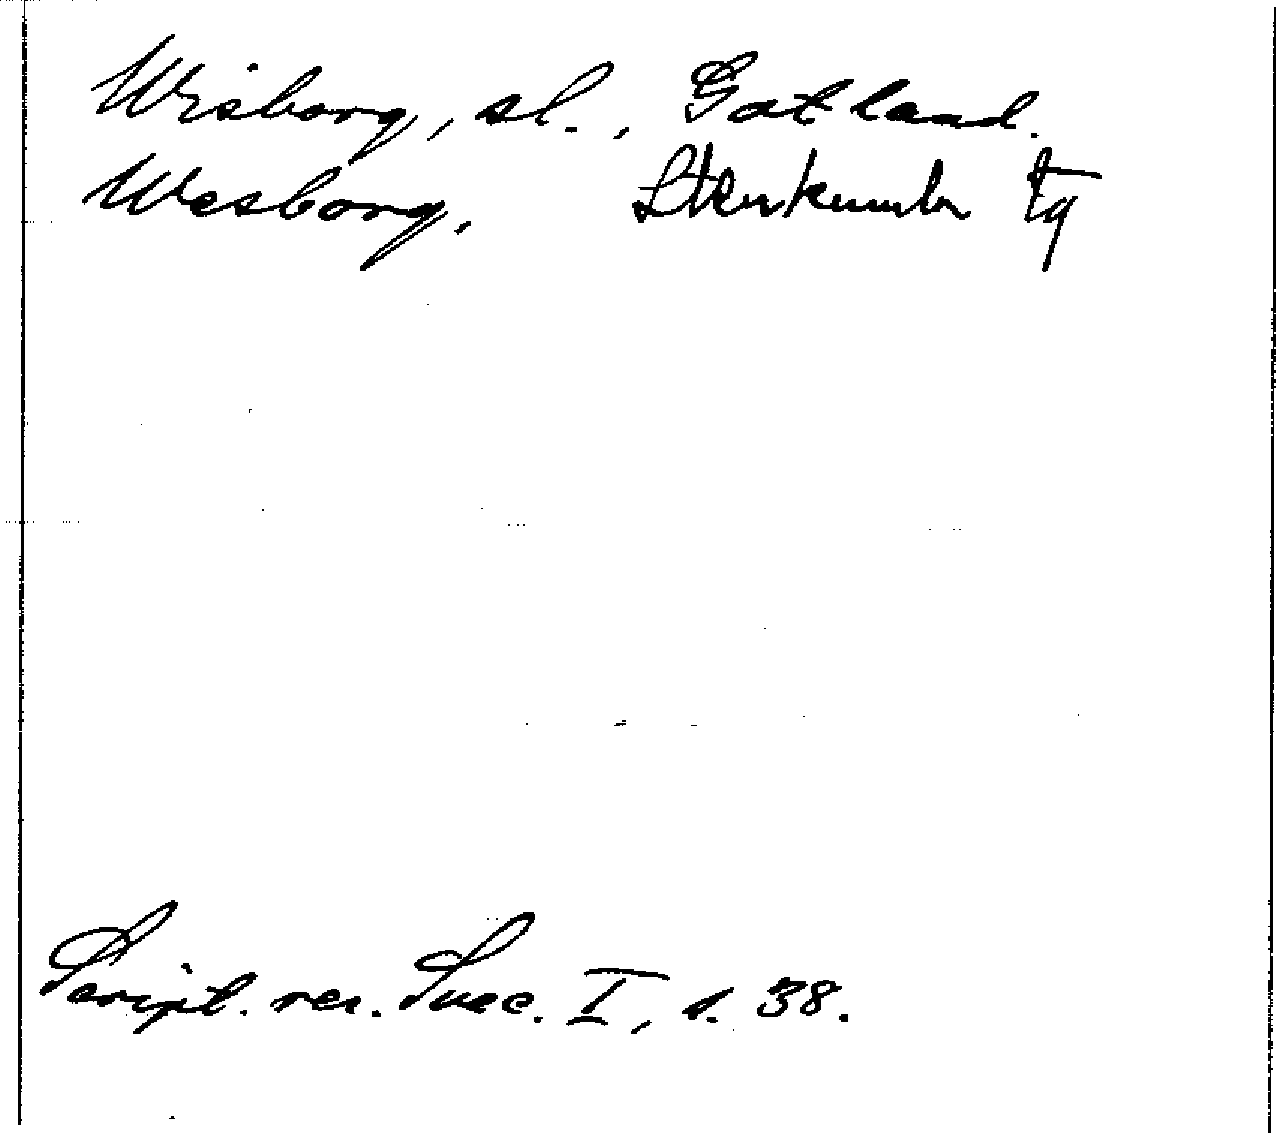 Wisborg, sl., Gotland.
Wesborg, Stenkumla tg
Script. rer. Suec. I, s. 38.